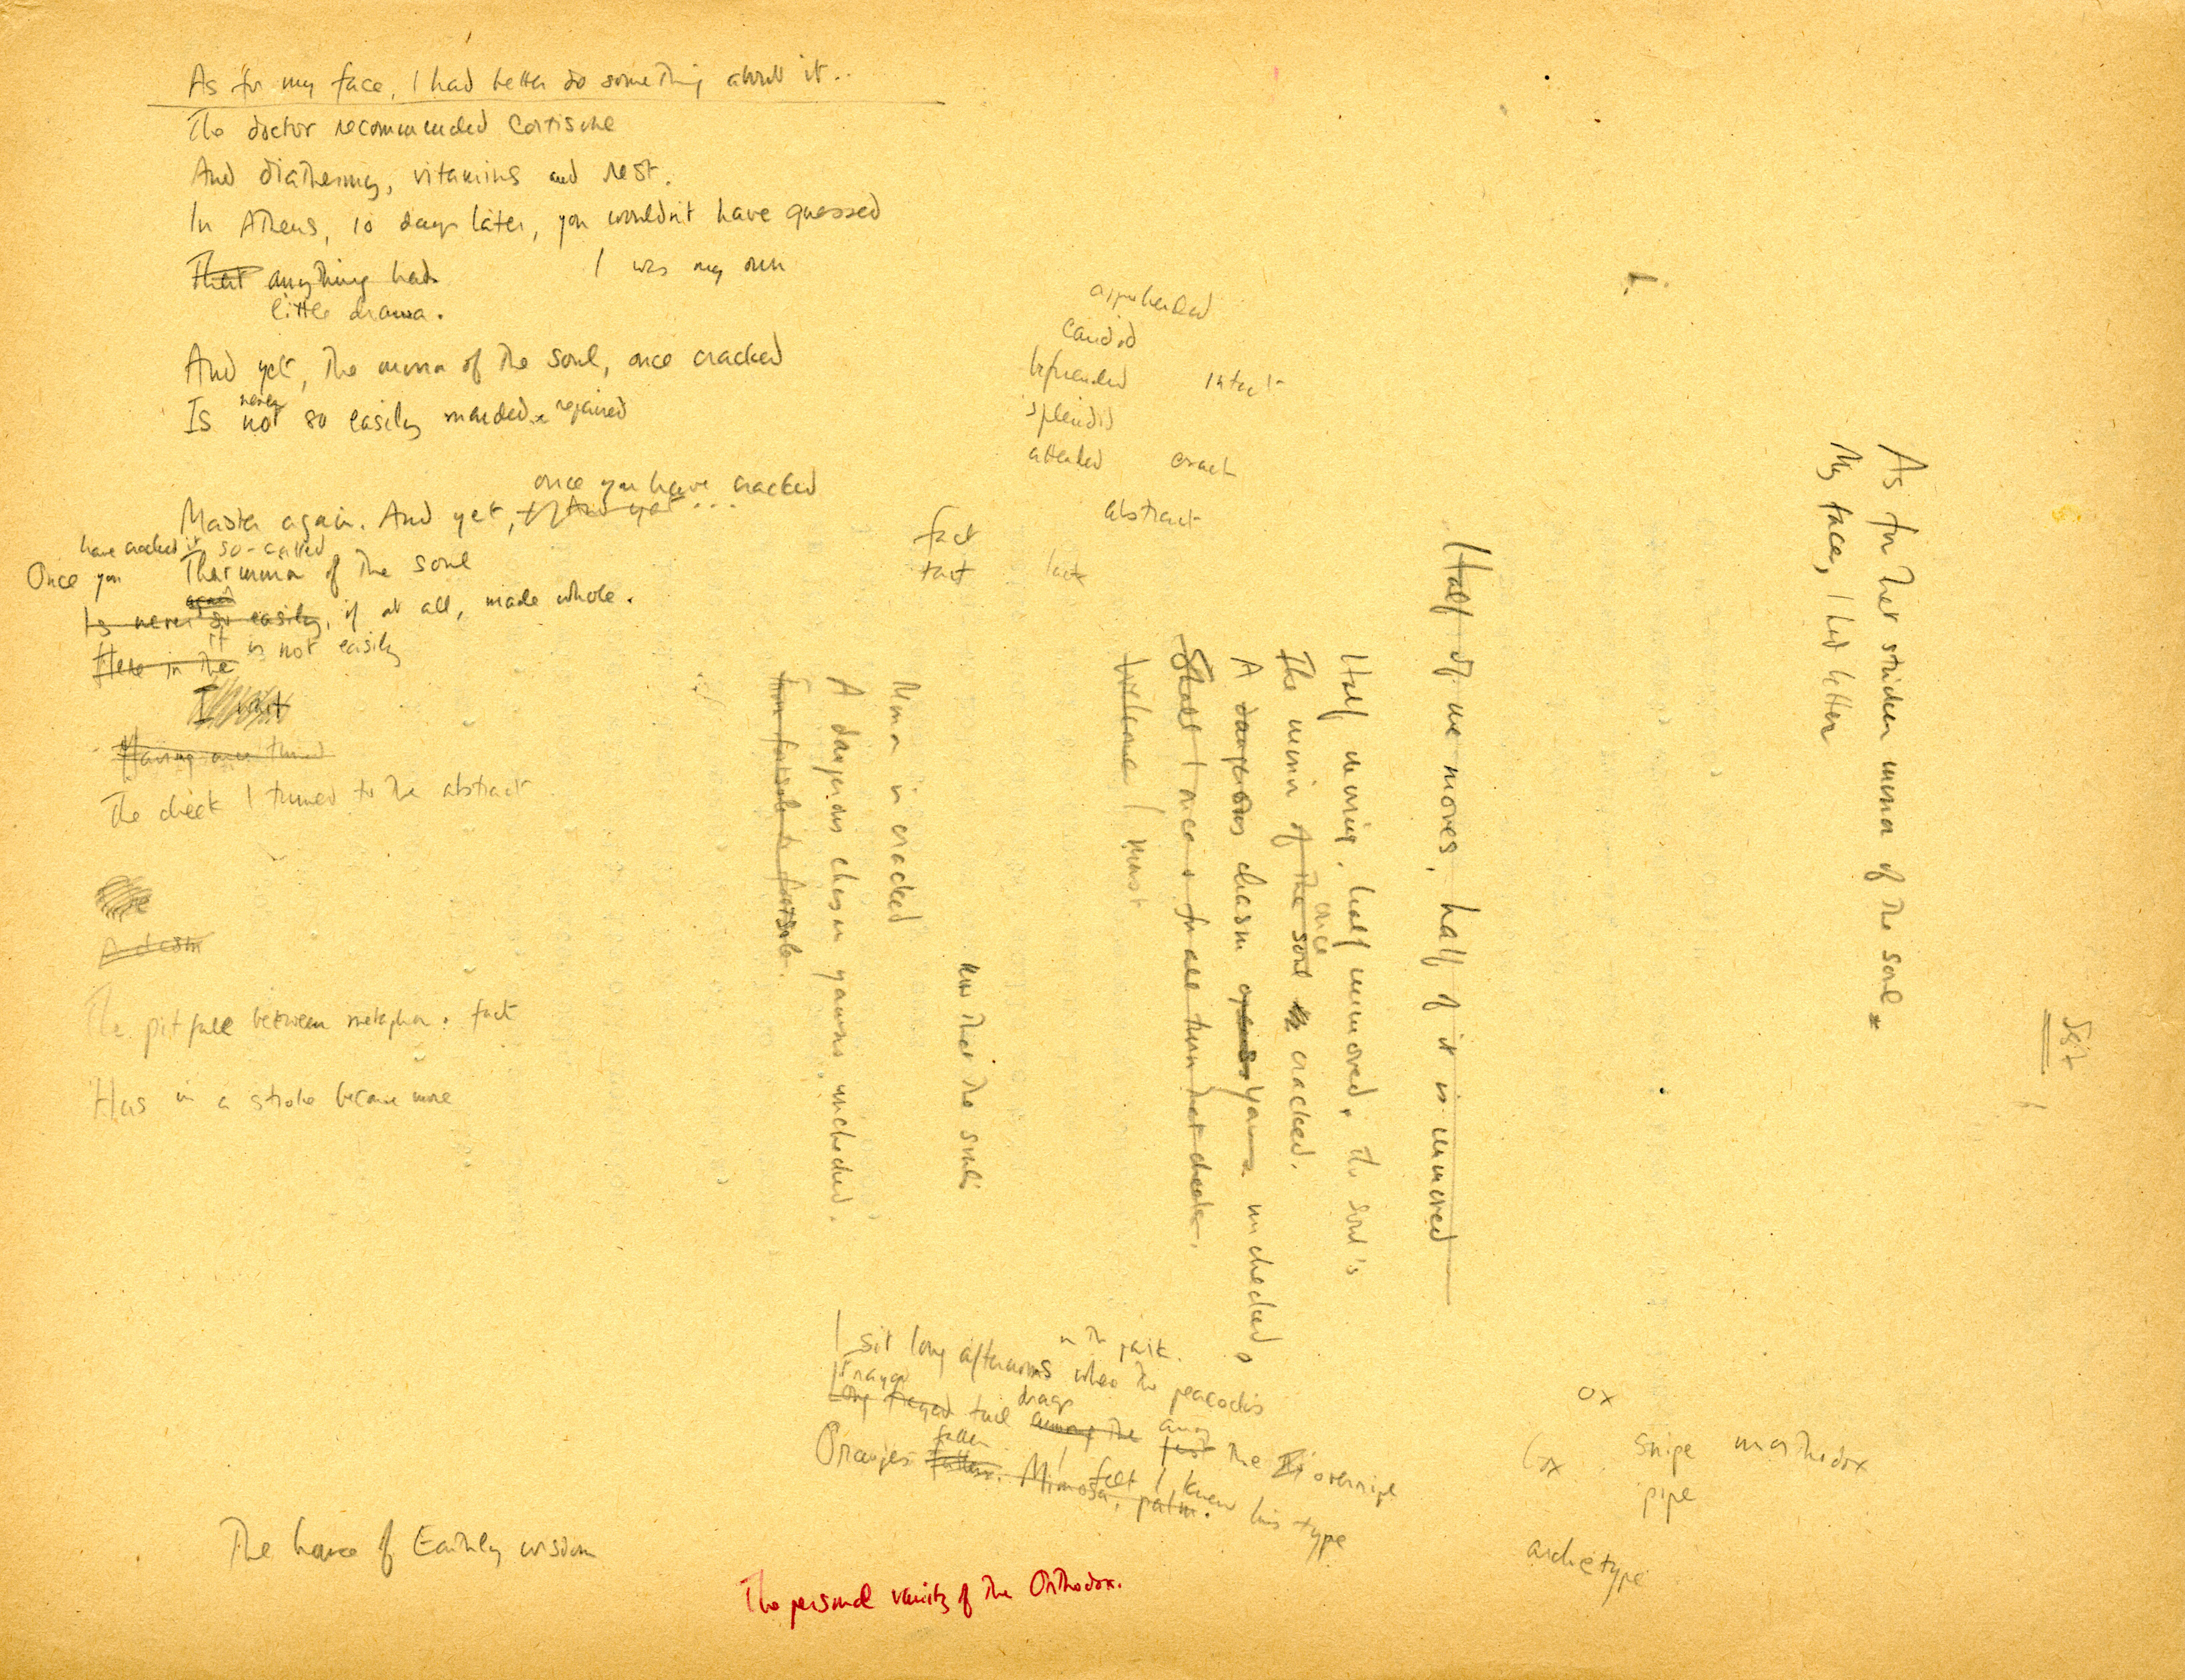 As for my face, I had better do something about it..
The doctor recommended Cortisone
And diathermy, vitamins and rest.
In Athens, 10 days later, you wouldn't have guessed
That anything had I was my own
little drama.
And yet, the mirror of the soul, once cracked
never
Is not so easily mended repaired
once you have cracked
Master again. And yet, And yet ...
have cracked it so-called
Once you That mirror of the soul
again
Is never so easily, if at all, made whole.
it is not easily
Here in the
I
Having once turned
The cheek I turned to the abstract
A chasm
The pitfall between metaphor. fact
Has in a stroke become more
apprehended
candid
befriended intact
splendid
attended exact
abstract
fact
tact lack
As for that stricken mirror of the soul
My face, I had better
Sgt
Half of me moves, half of it is unmoved
Half moving, half unmoved, the soul's
once
The mirror of the soul is cracked.
A dangerous chasm opens yawns unchecked
Shall I once & for all turn that cheek.
I must
now that the soul's
Mirror is cracked
A dangerous chasm yawns unchecked.
from footsole to footsole.
in the park.
I sit long afternoons when the peacock's
Orange drags
Long frayed tail among the among the overripe
fallen I felt I knew his type
Oranges Mimosa, palm.
ox
box snipe unorthodox
pipe
archetype
The house of Earthly wisdom
The personal vanity of the Orthodox.